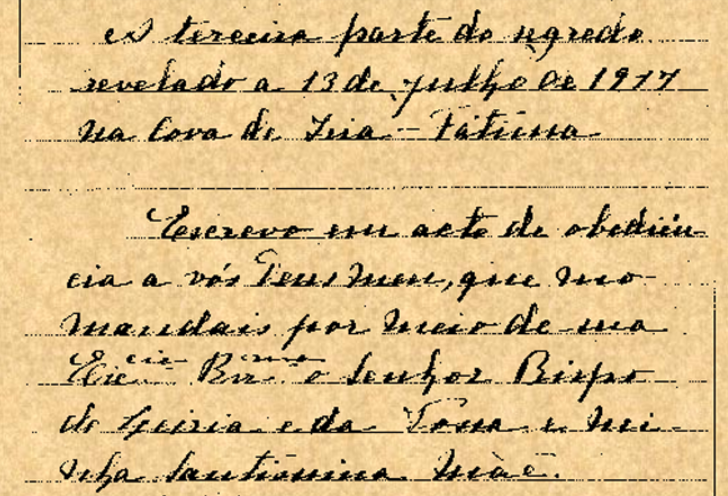 A terceira parte do segredo
revelado a 13 de julho de 1917
na Cova da Iria – Fátima
Escrevo em acto de obediên-
cia a vós Deus meu, que mo
mandais por meio de sua
Ex.cia Rev.ma o Senhor Bispo
de Leiria e da Vossa e mi-
nha Santíssima Mãe.